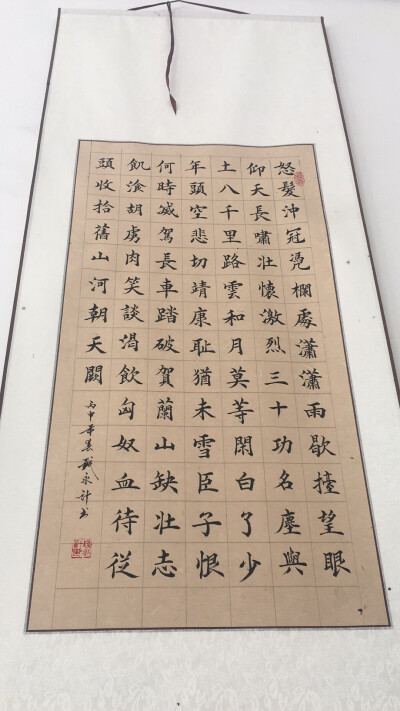 怒髮沖冠凭欄處瀟瀟雨歇擡望眼
仰天長嘯壯懷激烈三十功名塵與
土八千里路雲和月莫等閑白了少
年頭空悲切靖康耻猶未雪臣子恨
何時滅駕長車踏破賀蘭山缺壯志
飢湌胡虜肉笑談渴飲匈奴血待從
頭收拾舊山河朝天闕
丙申年永計书